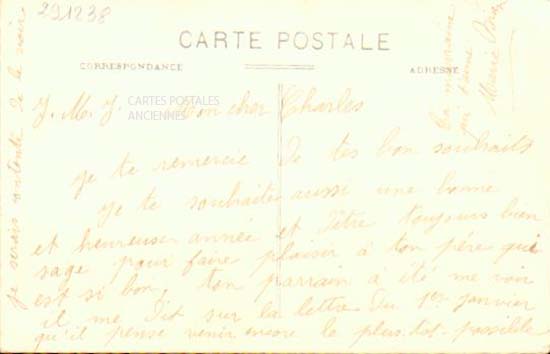 291238
CARTE POSTALE
CORRESPONDANCE
ADRESSE
CARTES POSTALES
ANCIENNES
J. M. J. Mon cher Charles
je te remercie de tes bon souhaits
je te souhaite aussi une bonne
et heureuse année et d'être toujours bien
sage pour faire plaisir à ton père qui
est si bon, ton parrain à été me voir
il me dit sur la lettre du 1er janvier
qu'il pense venir encore le plus tôt possible
je serais contente de le voir
ta marraine
qui t'aime
Marie